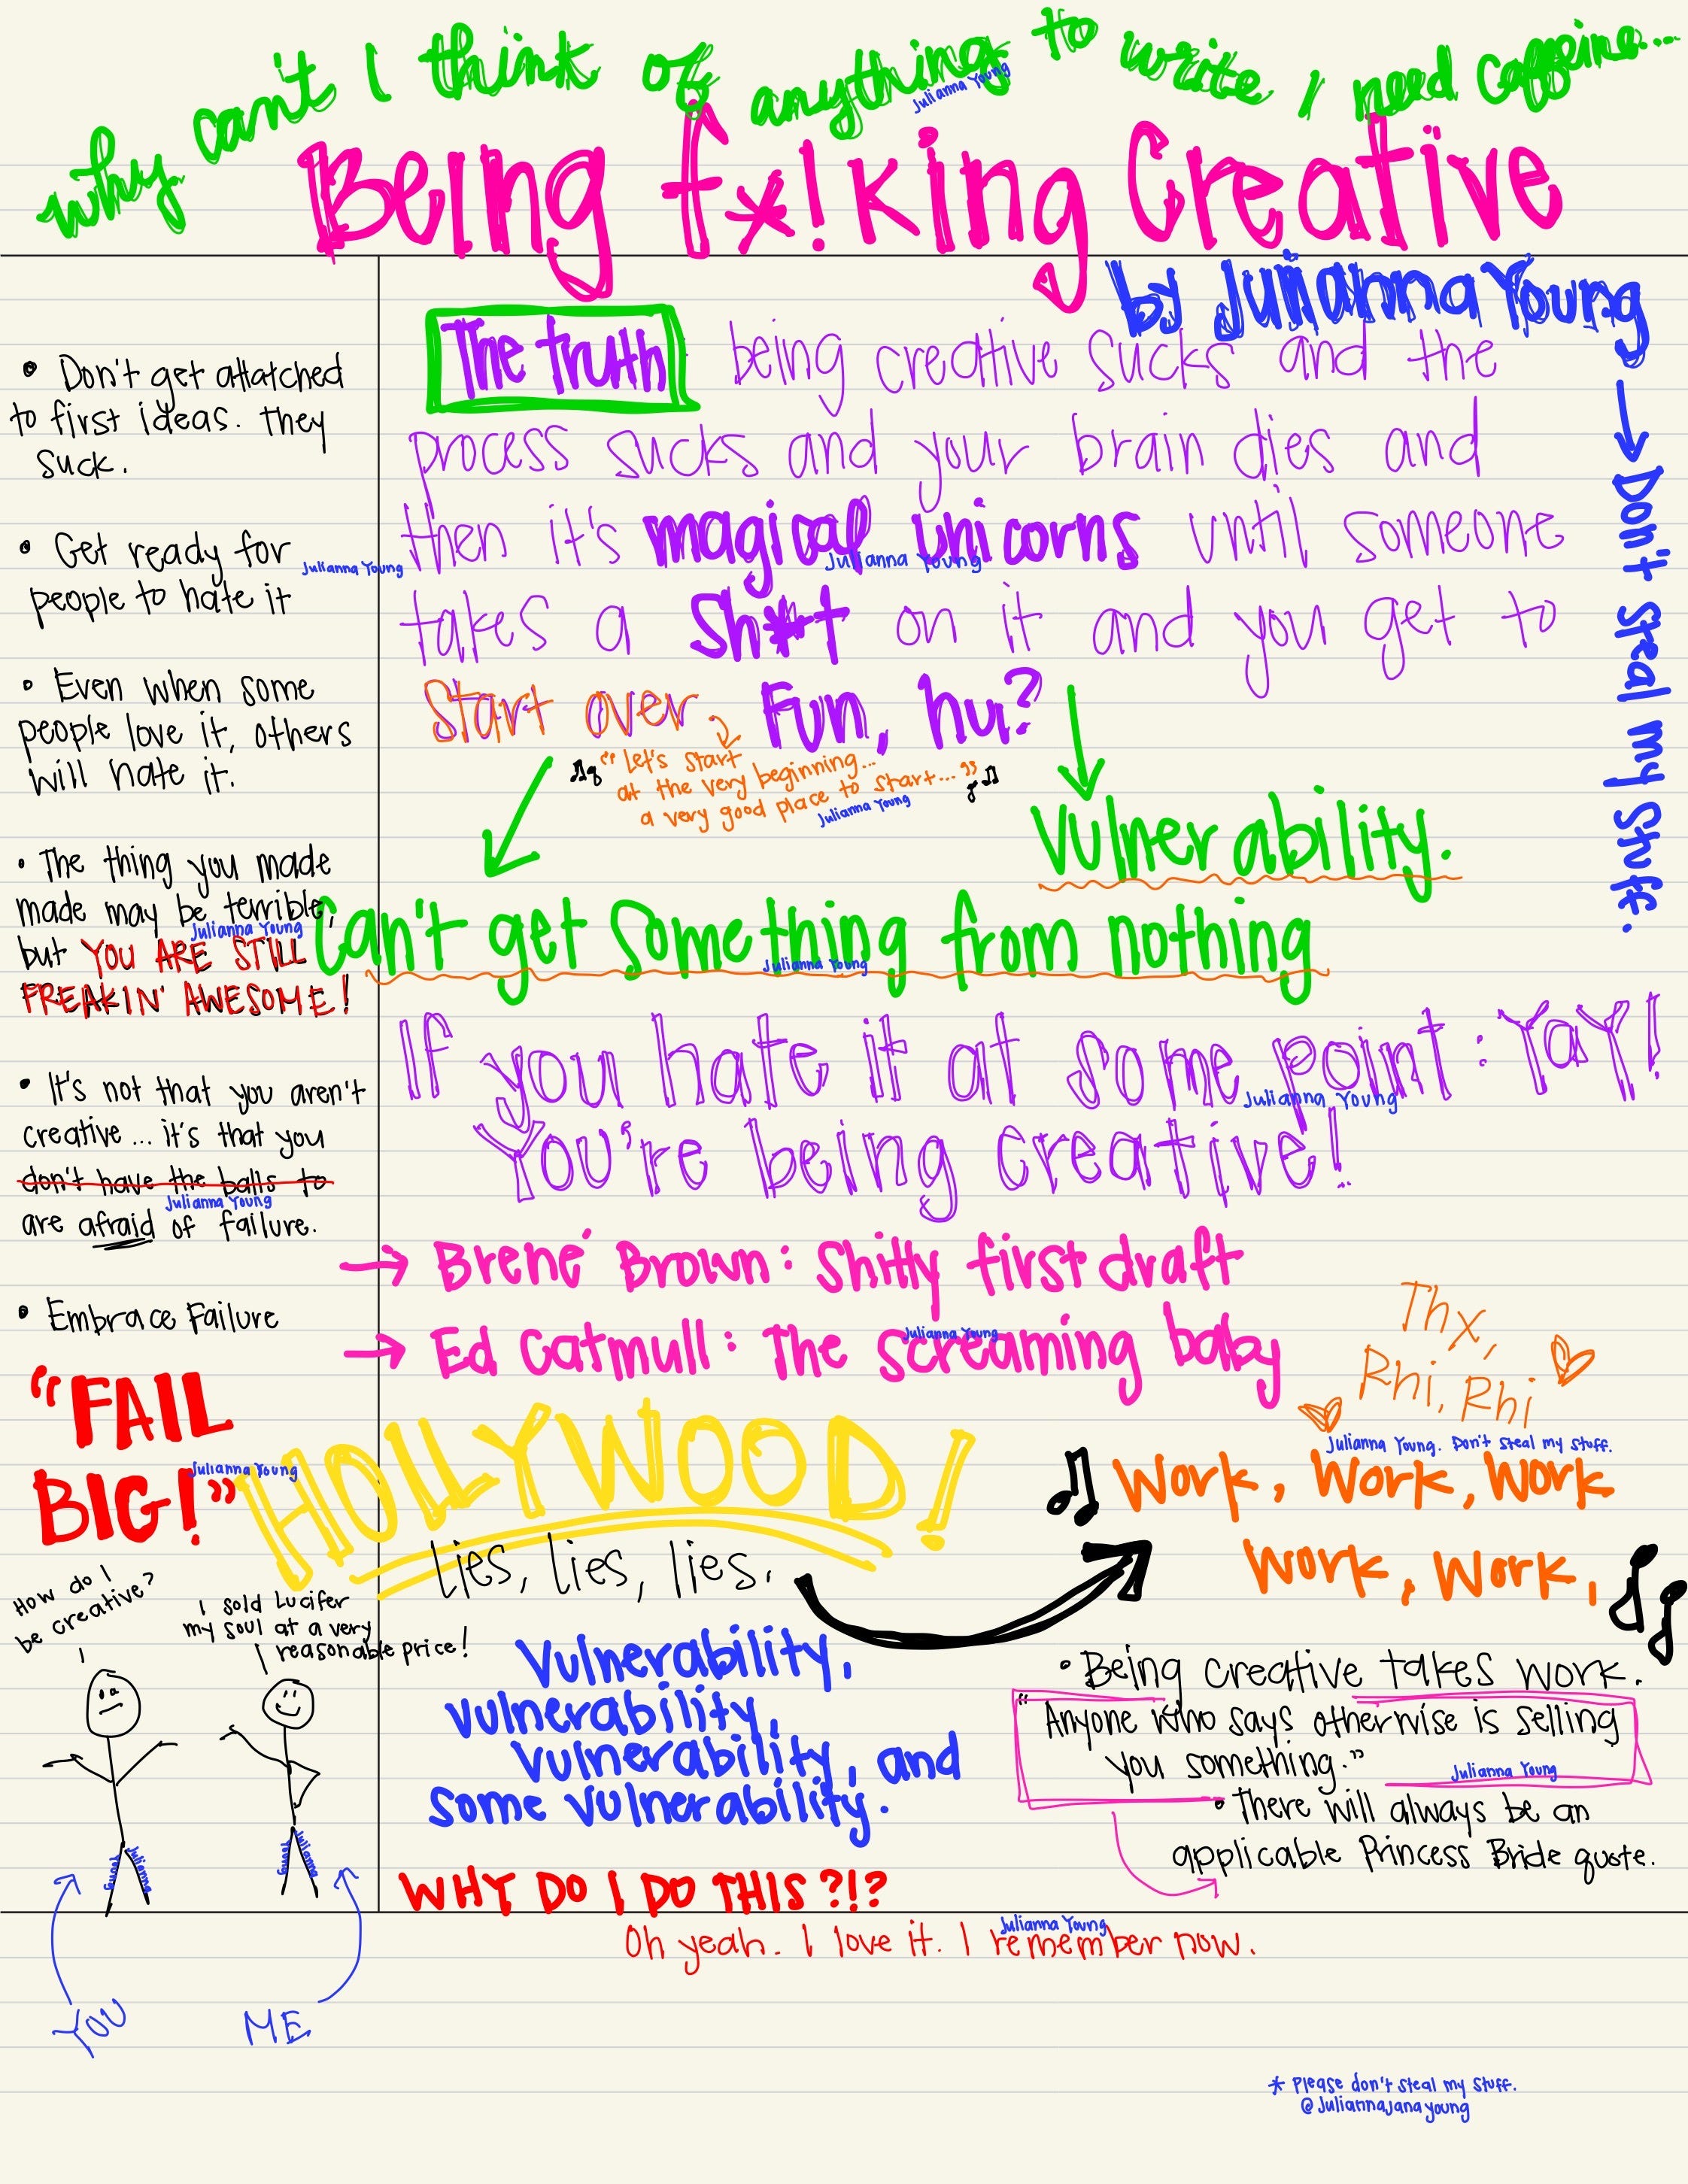 why can't I think of anything to write I need caffeine...
Julianna Young
Being f*!king Creative
by Julianna Young
→ Don't steal my stuff.
• Don't get attatched
to first ideas. They
suck.
• Get ready for
people to hate it
Julianna Young
• Even when some
people love it, others
will hate it.
• The thing you made
made may be terrible,
Julianna Young
but YOU ARE STILL
FREAKIN' AWESOME!
• It's not that you aren't
creative... it's that you
don't have the balls to
Julianna Young
are afraid of failure.
• Embrace Failure
"FAIL
BIG!"
Julianna Young
How do I
be creative?
I sold Lucifer
my soul at a very
reasonable price!
Julianna Young
Julianna Young
YOU
ME
The truth being creative sucks and the
process sucks and your brain dies and
then it's magical unicorns until someone
Julianna Young
takes a sh*t on it and you get to
start over. Fun, hu?
"Let's start
at the very beginning...
a very good place to start..."
Julianna Young
Vulnerability.
Can't get something from nothing
Julianna Young
If you hate it at some point: YaY!
Julianna Young
You're being creative!
→ Brené Brown: Shitty first draft
→ Ed Catmull: The screaming baby
Julianna Young
Thx,
Rhi, Rhi
Julianna Young. Don't steal my stuff.
HOLLYWOOD!
Lies, lies, lies.
Work, Work, Work
Work, Work,
Vulnerability,
vulnerability,
vulnerability, and
some vulnerability.
• Being creative takes work.
"Anyone who says otherwise is selling
you something."
Julianna Young
• There will always be an
applicable Princess Bride quote.
WHY DO I DO THIS?!?
Julianna Young
Oh yeah. I love it. I remember now.
* Please don't steal my stuff.
@Juliannajanayoung